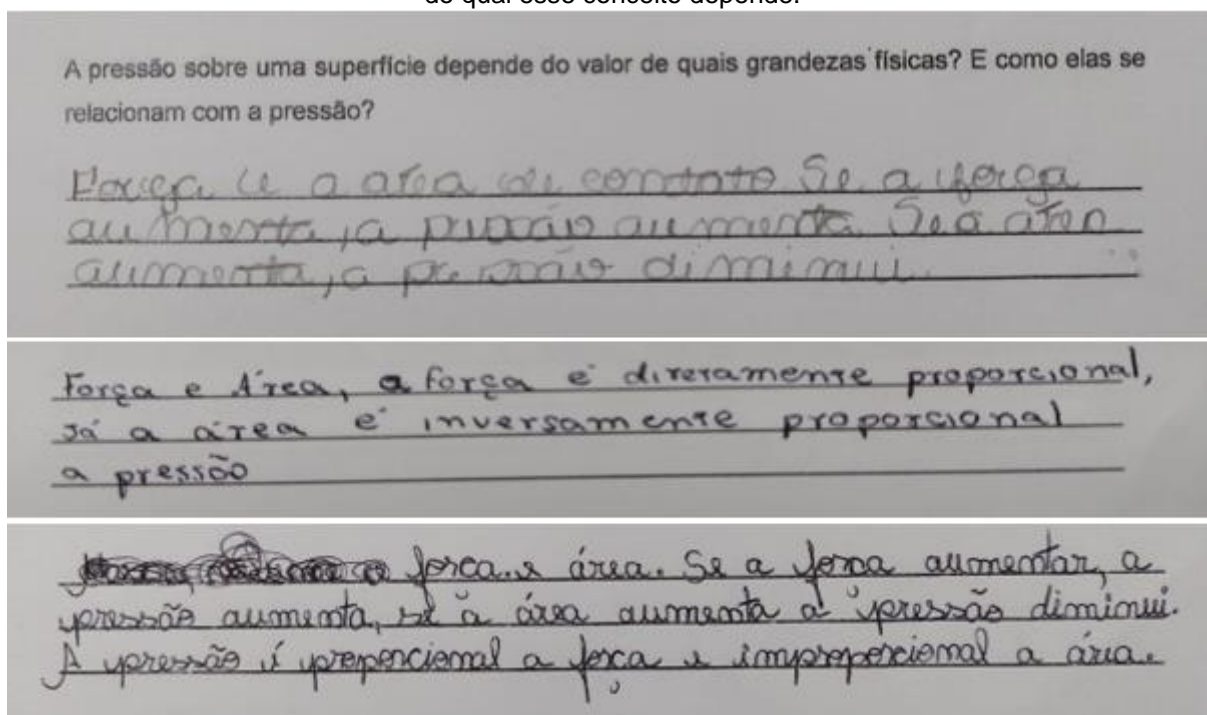 do qual esse conceito depende.
A pressão sobre uma superfície depende do valor de quais grandezas físicas? E como elas se
relacionam com a pressão?
Força e a area de contato Se a força
aumenta, a pressão aumenta. Se a area
aumenta, a pressão diminui.
Força e Área, a força é diretamente proporcional,
Já a área é inversamente proporcional
a pressão
força e área. Se a força aumentar, a
pressão aumenta, se a área aumenta a pressão diminui.
A pressão é proporcional a força e improporcional a área.